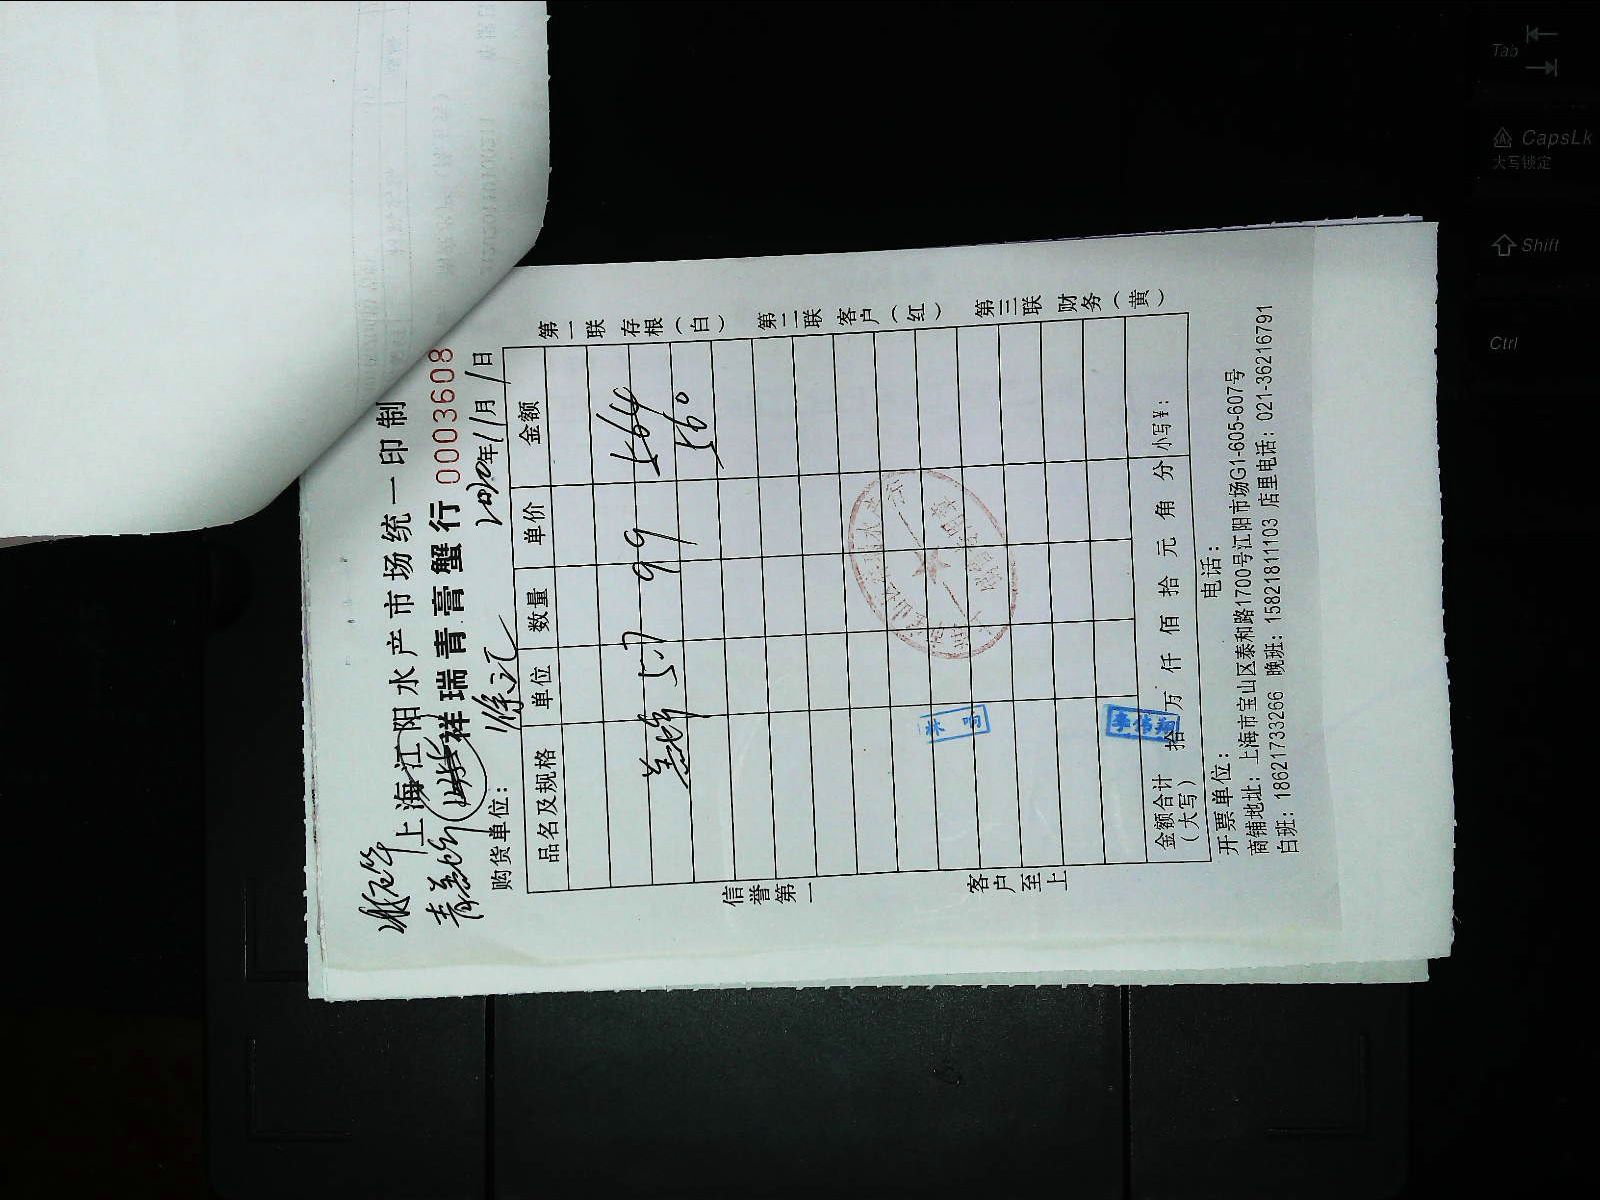 上海江阳水产市场统一印制
祥瑞青膏蟹行
0003608
购货单位：徐汇
2020年11月1日
品名及规格 单位 数量 单价 金额
5.7 99 564
560
金额合计（大写） 拾 万 仟 佰 拾 元 角 分 小写¥：
开票单位： 电话：
商铺地址：上海市宝山区泰和路1700号江阳市场G1-605-607号
白班：18621733266 晚班：15821811103 店里电话：021-36216791
第一联 存根（白） 第二联 客户（红） 第三联 财务（黄）
信誉第一 客户至上
Tab
CapsLk
大写锁定
Shift
Ctrl